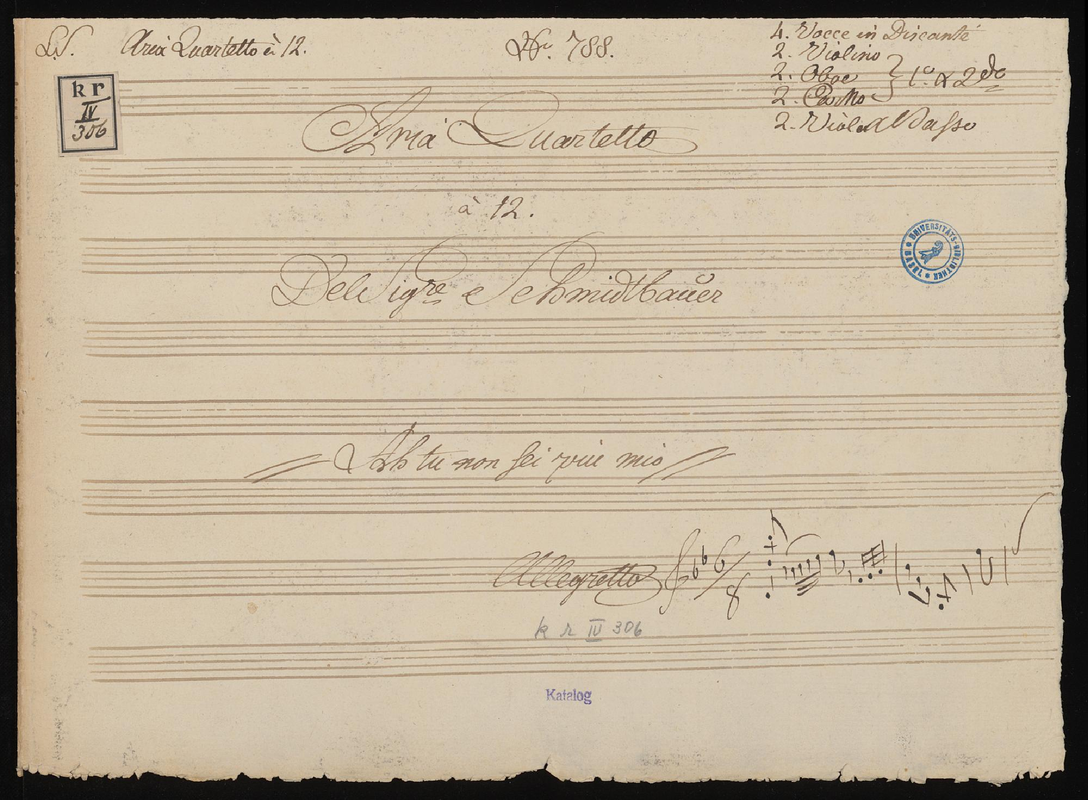 L.S. Aria Quartetto à 12.
No. 788.
4. Vocce in Discante
2. Violino
2. Oboe
2. Corno
1o. & 2do
2. Viola & Basso
kr
IV
306
Aria Quartetto
à 12.
Del Sigre Schmidtbauer
UNIVERSITÄTS-BIBLIOTHEK BASEL
Ah tu non sei piu mio
Allegretto 6/8
k r IV 306
Katalog